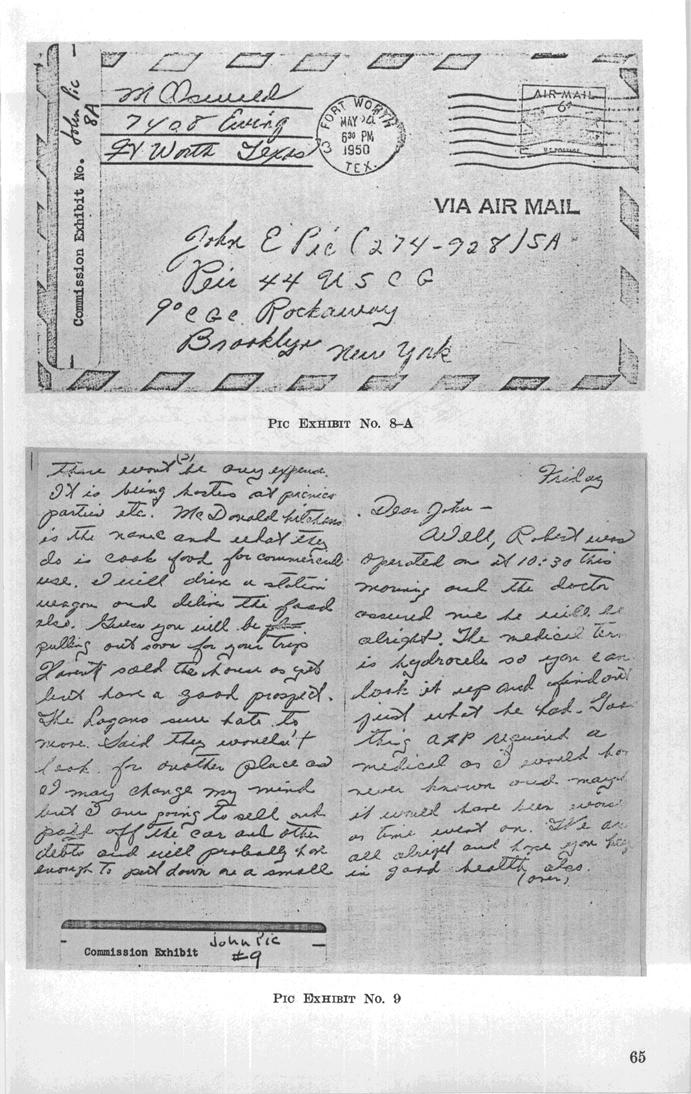 Commission Exhibit No. John Pic 8A
M Oswald
7408 Ewing
Ft Worth Texas
FORT WORTH
MAY 24
6 30 PM
1950
TEX.
AIR MAIL
6¢
U.S. POSTAGE
VIA AIR MAIL
John E Pic (274-928) SA
Peir 44 U S C G
℅ C G C Rockaway
Brooklyn New York
PIC EXHIBIT No. 8–A
(3)
there won't be any expense.
It is being hostess at picnics
parties etc. McDonald kitchens
is the name and what they
do is cook food for commercial
use. I will drive a station
wagon and deliver the food
also. Guess you will be
pulling out soon for your trip
Haven't sold the house as yet
but have a good prospect.
The Logans sure hate to
move. Said they wouldn't
look for another place as
I may change my mind
but I am going to sell and
pay off the car and other
debts and will probably have
enough to put down on a small
Friday
Dear John –
Well, Robert was
operated on at 10:30 this
morning and the doctor
assured me he will be
alright. The medical term
is hydrocele so you can
look it up and find out
just what he had. Good
thing A&P required a
medical as I would have
never known and maybe
it would have been worse
as time went on. We are
all alright and hope you are
in good health also.
(over)
Commission Exhibit John Pic
#9
PIC EXHIBIT No. 9
65